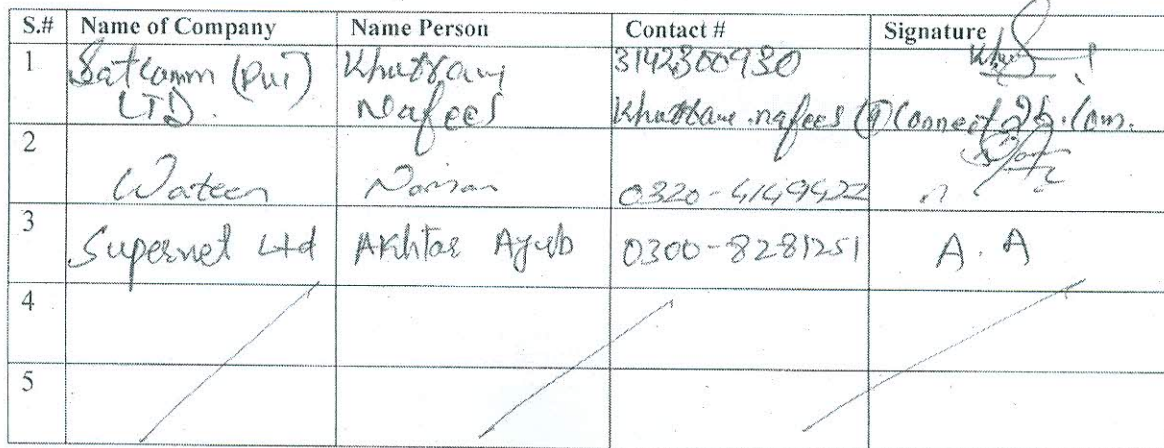 S.# Name of Company Name Person Contact # Signature
1 Satcomm (Pvt) Khurram 3142300930
LTD. Nafees Khurram.nafees@Connect2b.com.
2
Wateen Noman 0320-4149422
3
Supernet Ltd Akhtar Ayub 0300-8281251 A. A
4
5